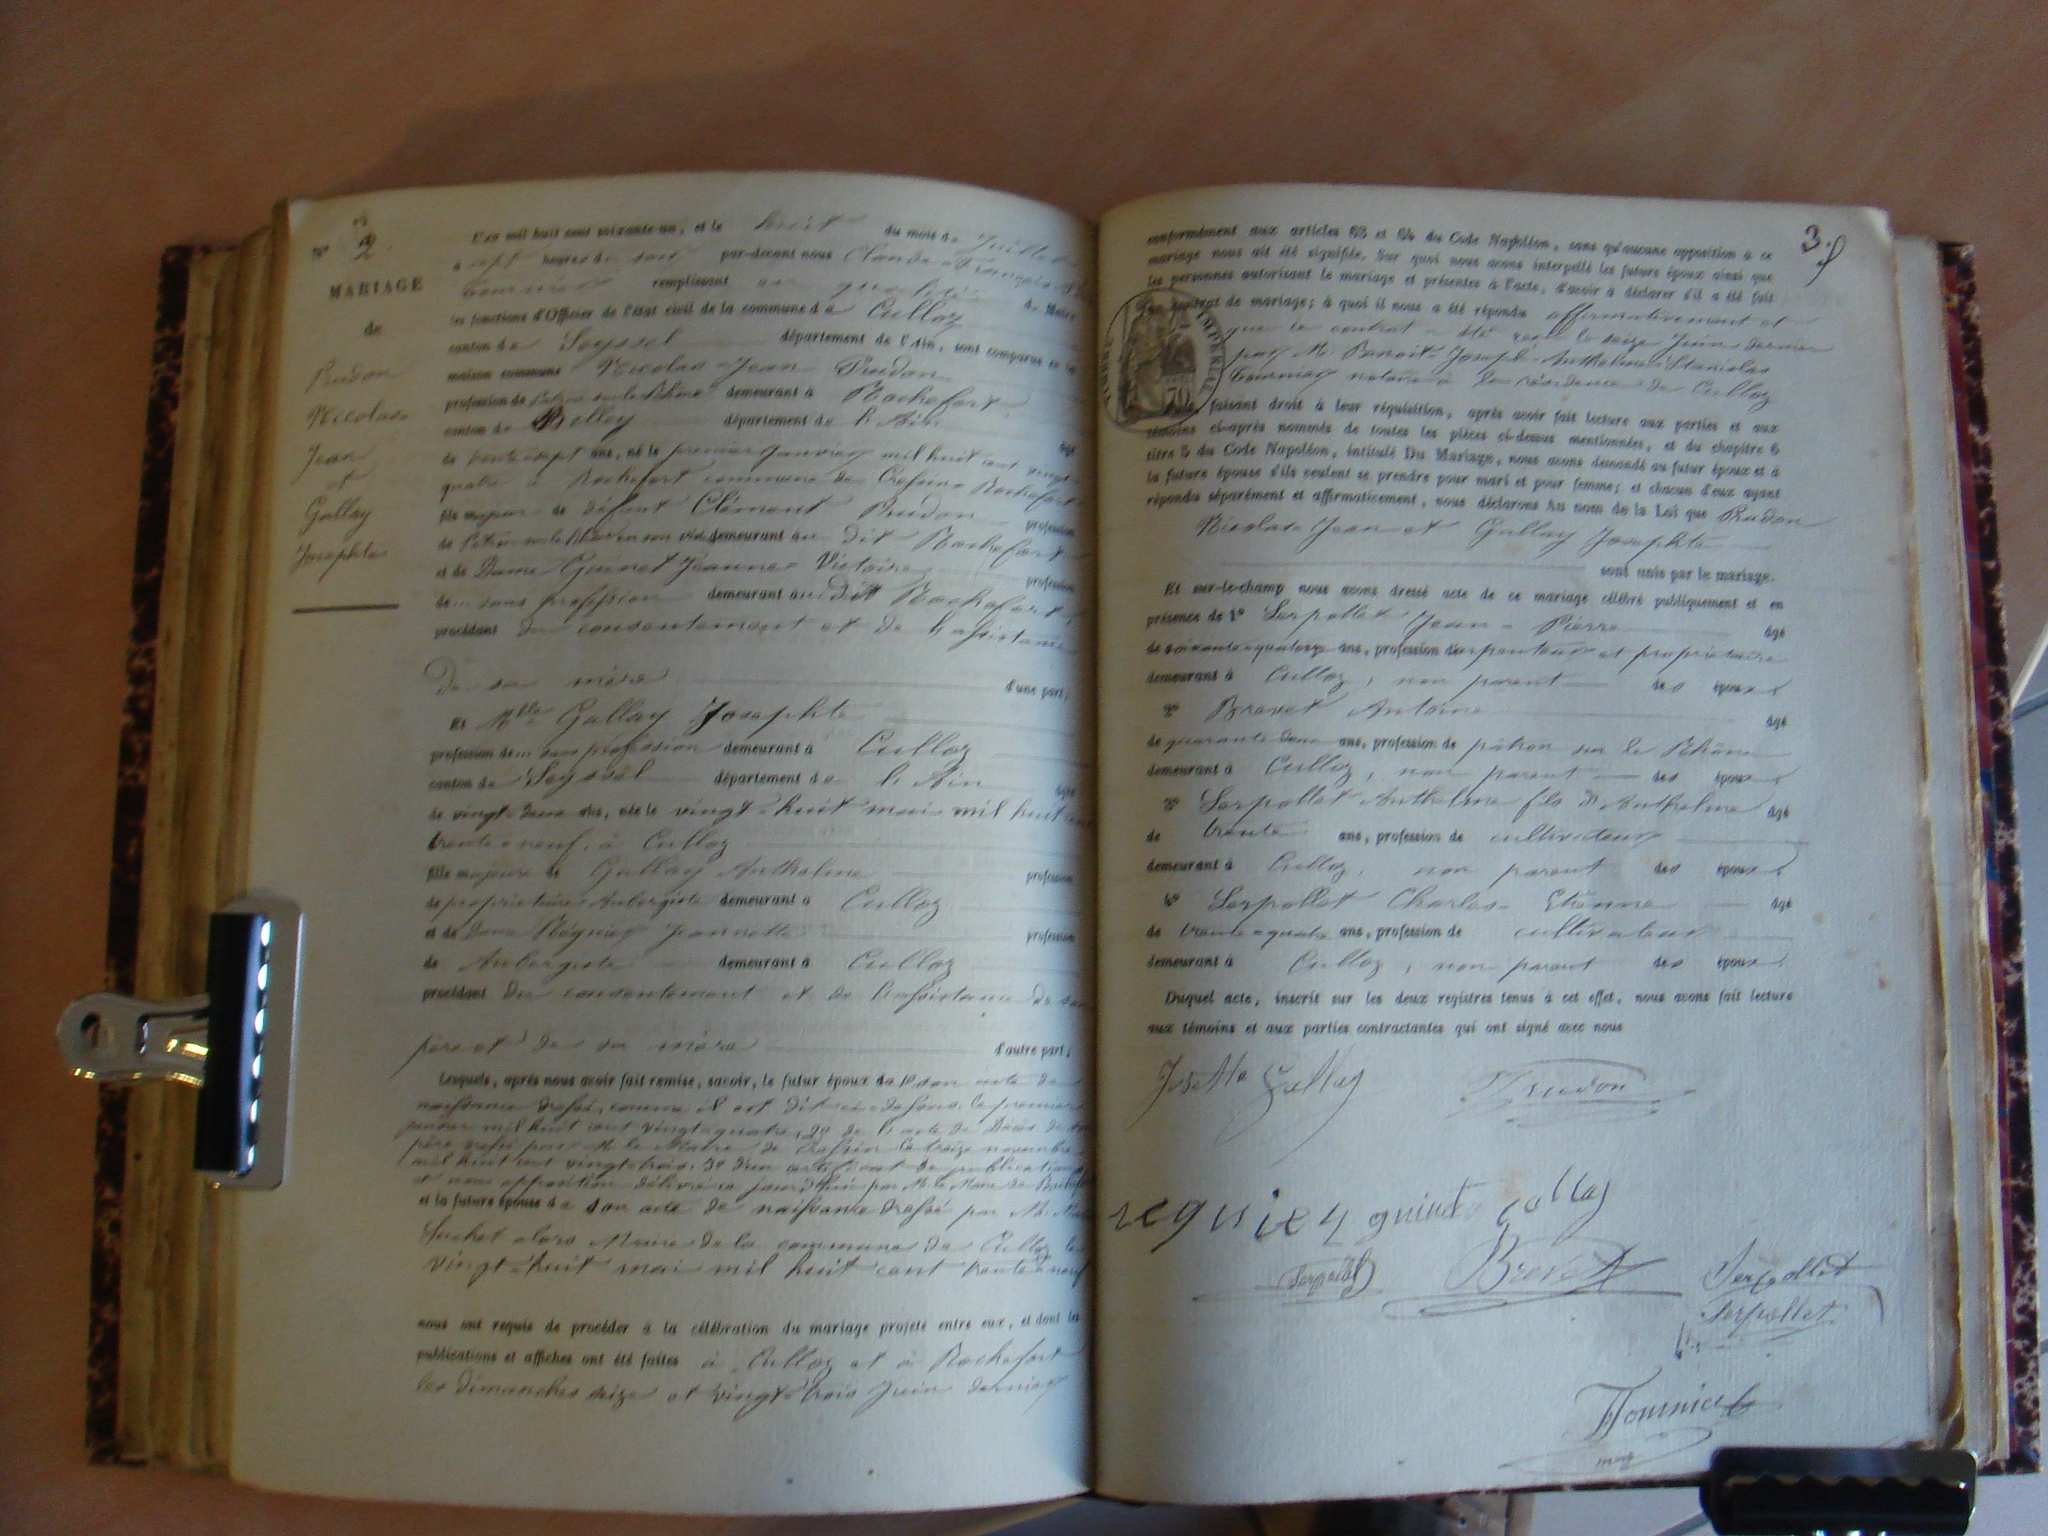 N° 2
MARIAGE
de
Prudon
Nicolas
Jean
et
Gallay
Josephte
L'an mil huit cent soixante-un, et le huit du mois de Juillet
à sept heures du soir par-devant nous Claude François
Fournier remplissant en qualité de Maire
les fonctions d'Officier de l'état civil de la commune de Culloz
canton de Seyssel département de l'Ain, sont comparus en la
maison commune Nicolas Jean Prudon
profession de Patron sur le Rhône demeurant à Rochefort,
canton de Belley département de l'Ain âgé
de trente sept ans, né le premier Janvier mil huit cent vingt
quatre à Rochefort commune de Cressin Rochefort
fils majeur de défunt Clément Prudon profession
de Patron sur le Rhône en son vivant demeurant au dit Rochefort
et de Dame Guinet Jeanne Victoire profession
de sans profession demeurant au dit Rochefort,
procédant du consentement et de l'assistance
de sa mère d'une part;
Et Mlle Gallay Josephte
profession de sans profession demeurant à Culloz
canton de Seyssel département de l'Ain âgée
de vingt-deux ans, née le vingt-huit mai mil huit cent
trente neuf, à Culloz
fille majeure de Gallay Anthelme profession
de propriétaire Aubergiste demeurant à Culloz
et de Dame Régnier Jeannette profession
de Aubergiste demeurant à Culloz
procédant du consentement et de l'assistance de son
père et de sa mère d'autre part;
Lesquels, après nous avoir fait remise, savoir, le futur époux de 1° son acte de
naissance dressé, comme il est dit ci-dessus, le premier
janvier mil huit cent vingt quatre, 2° de l'acte de Décès de son
père dressé par M. le Maire de Cressin le treize novembre
mil huit cent vingt trois, 3° d'un certificat de publications
et non opposition délivré ce jourd'hui par M. le Maire de Rochefort
et la future épouse de son acte de naissance dressé par M.
Suchet alors Maire de la commune de Culloz le
vingt-huit mai mil huit cent trente neuf
nous ont requis de procéder à la célébration du mariage projeté entre eux, et dont les
publications et affiches ont été faites à Culloz et à Rochefort
les dimanches seize et vingt-trois Juin dernier
3.
conformément aux articles 63 et 64 du Code Napoléon, sans qu'aucune opposition à ce
mariage nous ait été signifiée. Sur quoi nous avons interpellé les futurs époux ainsi que
les personnes autorisant le mariage et présentes à l'acte, d'avoir à déclarer s'il a été fait
un contrat de mariage; à quoi il nous a été répondu affirmativement et
que le contrat a été reçu le seize Juin dernier
par M. Benoit Joseph Anthelme Stanislas
Fournier notaire à la résidence de Culloz
IMPÉRIAL
faisant droit à leur réquisition, après avoir fait lecture aux parties et aux
témoins ci-après nommés de toutes les pièces ci-dessus mentionnées, et du chapitre 6
titre 5 du Code Napoléon, intitulé Du Mariage, nous avons demandé au futur époux et à
la future épouse s'ils veulent se prendre pour mari et pour femme; et chacun d'eux ayant
répondu séparément et affirmativement, nous déclarons Au nom de la Loi que Prudon
Nicolas Jean et Gallay Josephte
sont unis par le mariage.
Et sur-le-champ nous avons dressé acte de ce mariage célébré publiquement et en
présence de 1° Serpollet Jean-Pierre âgé
de soixante quatorze ans, profession d'arpenteur et propriétaire
demeurant à Culloz, non parent des époux
2° Brevet Antoine âgé
de quarante deux ans, profession de patron sur le Rhône
demeurant à Culloz, non parent des époux
3° Serpollet Anthelme fils d'Anthelme âgé
de trente ans, profession de cultivateur
demeurant à Culloz, non parent des époux
4° Serpollet Charles Etienne âgé
de trente quatre ans, profession de cultivateur
demeurant à Culloz, non parent des époux
Duquel acte, inscrit sur les deux registres tenus à cet effet, nous avons fait lecture
aux témoins et aux parties contractantes qui ont signé avec nous
Gallay Prudon
reqnier guinet Gallay
Serpollet Brevet Serpollet
Serpollet
Fournier